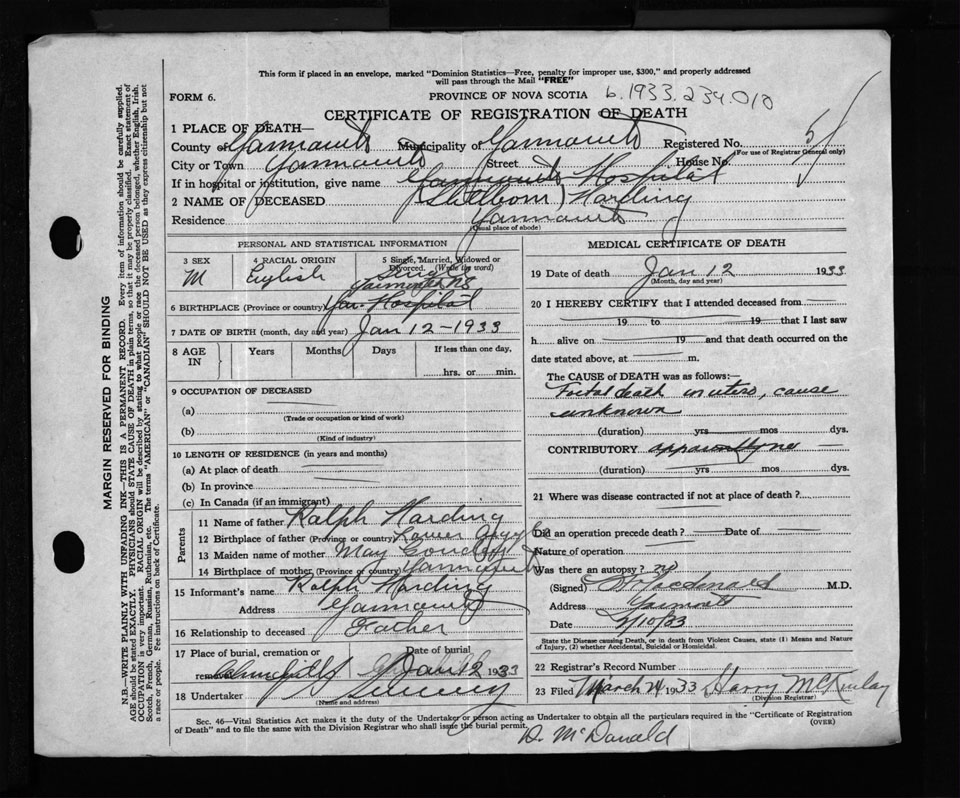 This form if placed in an envelope, marked "Dominion Statistics—Free, penalty for improper use, $300," and properly addressed
will pass through the Mail "FREE"
FORM 6.
PROVINCE OF NOVA SCOTIA b.1933.234.010
CERTIFICATE OF REGISTRATION OF DEATH
1 PLACE OF DEATH—
County of Yarmouth Municipality of Yarmouth Registered No. 51
(For use of Registrar General only)
City or Town Yarmouth Street House No.
If in hospital or institution, give name Yarmouth Hospital
2 NAME OF DECEASED (Stillborn) Harding
Residence Yarmouth
(Usual place of abode)
PERSONAL AND STATISTICAL INFORMATION
3 SEX 4 RACIAL ORIGIN 5 Single, Married, Widowed or
Divorced. (Write the word)
M English Single
Yarmouth NS
6 BIRTHPLACE (Province or country) Yar. Hospital
7 DATE OF BIRTH (month, day and year) Jan 12-1933
8 AGE IN Years Months Days If less than one day,
......hrs. or ......min.
9 OCCUPATION OF DECEASED
(a)
(Trade or occupation or kind of work)
(b)
(Kind of industry)
10 LENGTH OF RESIDENCE (in years and months)
(a) At place of death
(b) In province
(c) In Canada (if an immigrant)
Parents
11 Name of father Ralph Harding
12 Birthplace of father (Province or country) Lower Argyle
13 Maiden name of mother May
14 Birthplace of mother (Province or country) Yarmouth
15 Informant's name Ralph Harding
Address Yarmouth
16 Relationship to deceased Father
17 Place of burial, cremation or Date of burial
removal Jan 12 1933
18 Undertaker Sweeny
(Name and address)
MEDICAL CERTIFICATE OF DEATH
19 Date of death Jan 12 1933
(Month, day and year)
20 I HEREBY CERTIFY that I attended deceased from
19 to 19 that I last saw
h...... alive on 19 and that death occurred on the
date stated above, at m.
The CAUSE of DEATH was as follows:—
Foetal death in utero, cause
unknown
(duration) yrs mos dys.
CONTRIBUTORY apparently no
(duration) yrs mos dys.
21 Where was disease contracted if not at place of death?
Did an operation precede death? Date of
Nature of operation
Was there an autopsy? no
(Signed) Macdonald M.D.
Address Yarmouth
Date 2/10/33
State the Disease causing Death, or in death from Violent Causes, state (1) Means and Nature
of Injury, (2) whether Accidental, Suicidal or Homicidal.
22 Registrar's Record Number
23 Filed March 24 1933 Harry McKinlay
Division Registrar)
Sec. 46—Vital Statistics Act makes it the duty of the Undertaker or person acting as Undertaker to obtain all the particulars required in the "Certificate of Registration
of Death" and to file the same with the Division Registrar who shall issue the burial permit. (OVER)
D. McDonald
MARGIN RESERVED FOR BINDING
N.B.—WRITE PLAINLY WITH UNFADING INK—THIS IS A PERMANENT RECORD. Every item of information should be carefully supplied.
AGE should be stated EXACTLY. PHYSICIANS should STATE CAUSE OF DEATH in plain terms, so that it may be properly classified. Exact statement of
OCCUPATION is very important. RACIAL ORIGIN will be described by stating to what people or race the deceased person belonged, whether English, Irish,
Scotch, French, German, Russian, Ruthenian, etc. The terms "AMERICAN" or "CANADIAN" SHOULD NOT BE USED as they express citizenship but not
a race or people. See instructions on back of Certificate.